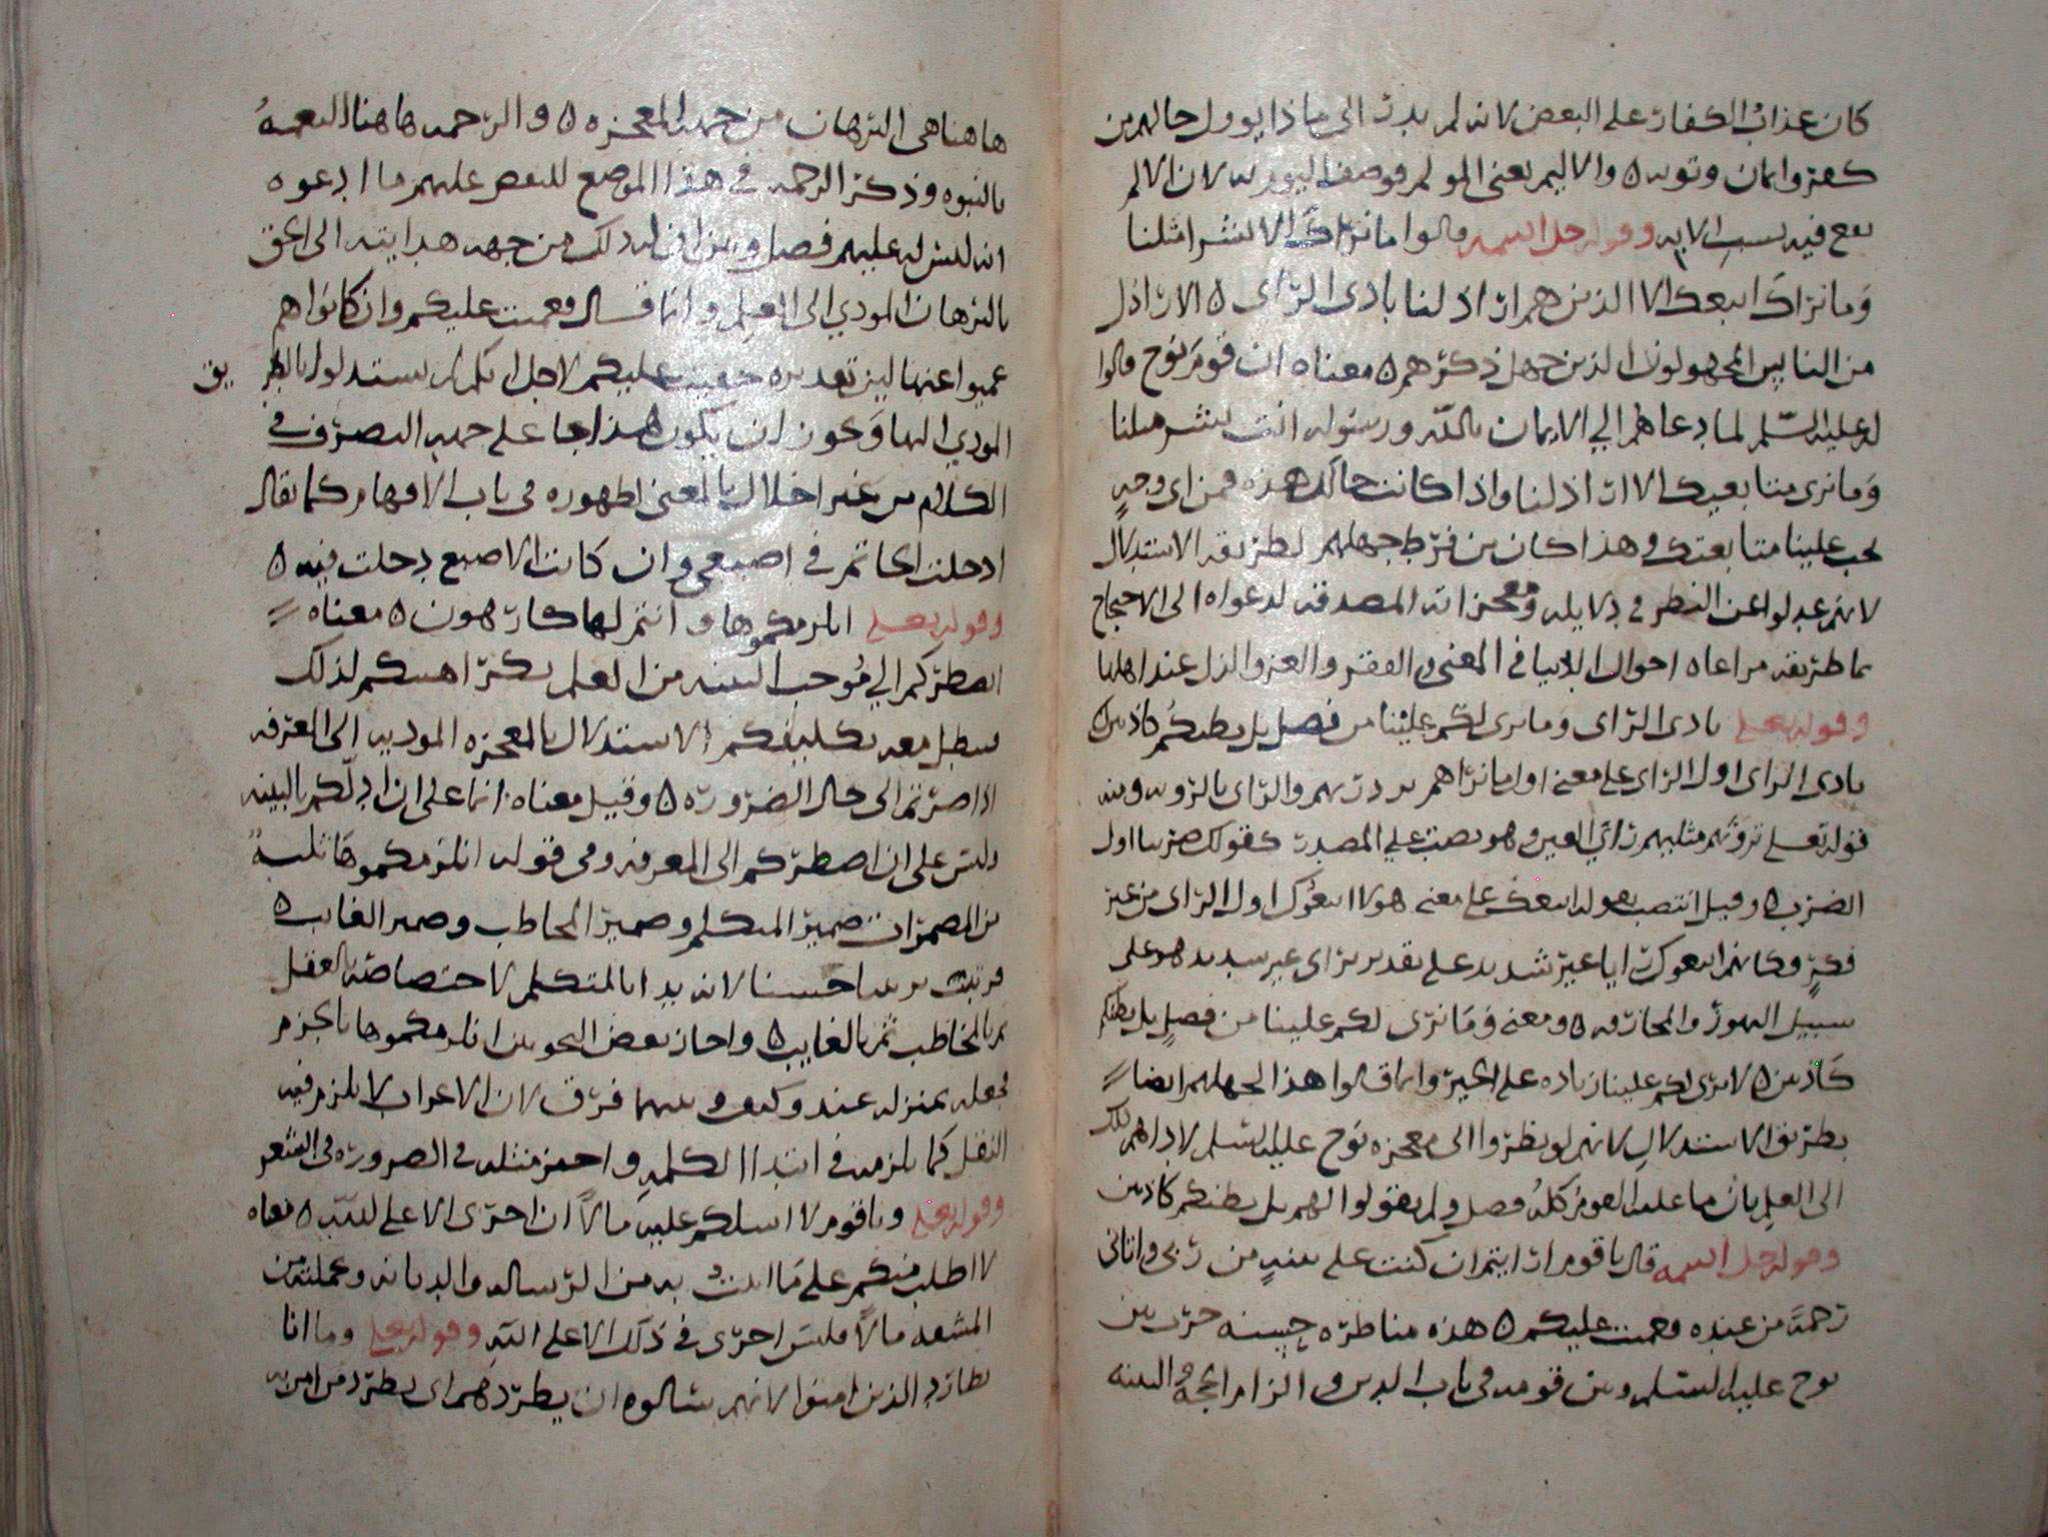 كان عذاب الكفار على البعض لانه لم يدر الى ماذا يوول حالهم من
كفر وايمان وتوبه ٥ والاليم بمعنى المولم فوصف اليوم به لان الالم
يقع فيه بسبب الايه وقوله جل اسمه قالوا ما نراك الا بشرا مثلنا
وما نراك اتبعك الا الذين هم اراذلنا بادى الراى ٥ الاراذل
من الناس المجهولون الذين جهل ذكرهم ٥ معناه ان قوم نوح قالوا
له عليه السلم لما دعاهم الي الايمان بالله ورسوله انت بشر مثلنا
وما نرى متابعيك الا اراذلنا واذا كانت حالك هذه فمن اى وجه
يجب علينا متابعتك وهذا كان من فرط جهلهم بطريقه الاستدلال
لانهم عدلوا عن النظر في دلايله ومعجزاته المصدقه لدعواه الى الاحتجاج
بما طريقه مراعاه احوال الدنيا في الغنى والفقر والعز والذل عند اهلها
وقوله تعلى بادى الراى وما نرى لكم علينا من فضل بل نظنكم كاذبين
بادى الراى اول الراى على معنى اول ما نراهم والراى بالرويه ومنه
قوله تعلى ترونهم مثليهم راي العين وهو نصب على المصدر كقولك ضربنا اول
الضرب ٥ وقيل انتصب بقوله اتبعك على معنى هولا اتبعوك اول الراى من غير
فكر وكانهم اتبعوك رايا غير شديد على تقدير براى غير سديد هو على
سبيل التهور والمجازفه ٥ ومعنى وما نرى لكم علينا من فضل بل نظنكم
كاذبين ٥ لا نرى لكم علينا زياده على الخير وانما قالوا هذا لجهلهم ايضا
بطريق الاستدلال لانهم لو نظروا الى معجزه نوح عليه السلم لاداهم ذلك
الى العلم بان ما عليه القوم كله فضل ولم يقولوا لهم بل نظنكم كاذبين
وقوله جل اسمه قال يا قوم ارايتم ان كنت على بينه من ربى واتانى
رحمة من عنده فعميت عليكم ٥ هذه مناظره حسنه جرت بين
نوح عليه السلم وبين قومه في باب الدين والزام الحجه والبينه
هاهنا هى البرهان من جهه المعجزه ٥ والرحمه هاهنا النعمه
بالنبوه وذكر الرحمه في هذا الموضع للنقض عليهم ما ادعوه
انه ليس له عليهم فضل وبين ان له ذلك من جهه هدايته الى الحق
بالبرهان المودي الى العلم وانما قال فعميت عليكم وان كانوا هم
عموا عنها لان تقديره خفيت عليكم لاجل انكم لم تستدلوا بالطريق
المودي اليها ويجوز ان يكون هذا جا على جهه التصرف في
الكلام من غير اخلال بالمعنى لظهوره في باب الافهام كما يقال
ادخلت الخاتم في اصبعى وان كانت الاصبع دخلت فيه ٥
وقوله تعلى انلزمكموها وانتم لها كارهون ٥ معناه
انضطركم الي موجب البينه من العلم بكراهتكم لذلك
فيبطل معه تكليفكم الاستدلال بالمعجزه المودیه الى المعرفه
اذا صرتم الى حال الضروره ٥ وقيل معناه انما على ان ادلكم بالبينه
وليس على ان اضطركم الى المعرفه وفى قوله انلزمكموها ثلثه
من المضمرات ضمير المتكلم وضمير المخاطب وضمير الغايب ٥
فرتبت ترتيبا حسنا لانه بدا بالمتكلم لاختصاصه بالفعل
ثم بالمخاطب ثم بالغايب ٥ واجاز بعض النحويين انلزمكموها بالجزم
فجعله بمنزله عضد وكتف وبينهما فرق لان الاعراب لا يلزم فيه
النقل كما يلزمه في ابتدا الكلمه واجيز مثله في الضروره في الشعر
وقوله تعلى ويا قوم لا اسلكم عليه مالا ان اجرى الا على الله ٥ معناه
لا اطلب منكم على ما اتيت به من الرساله والديانه وعملته من
المشقه مالا فليس اجرى في ذلك الا على الله وقوله تعلى وما انا
بطارد الذين امنوا لانهم سالوه ان يطردهم اى يطرد من امن به